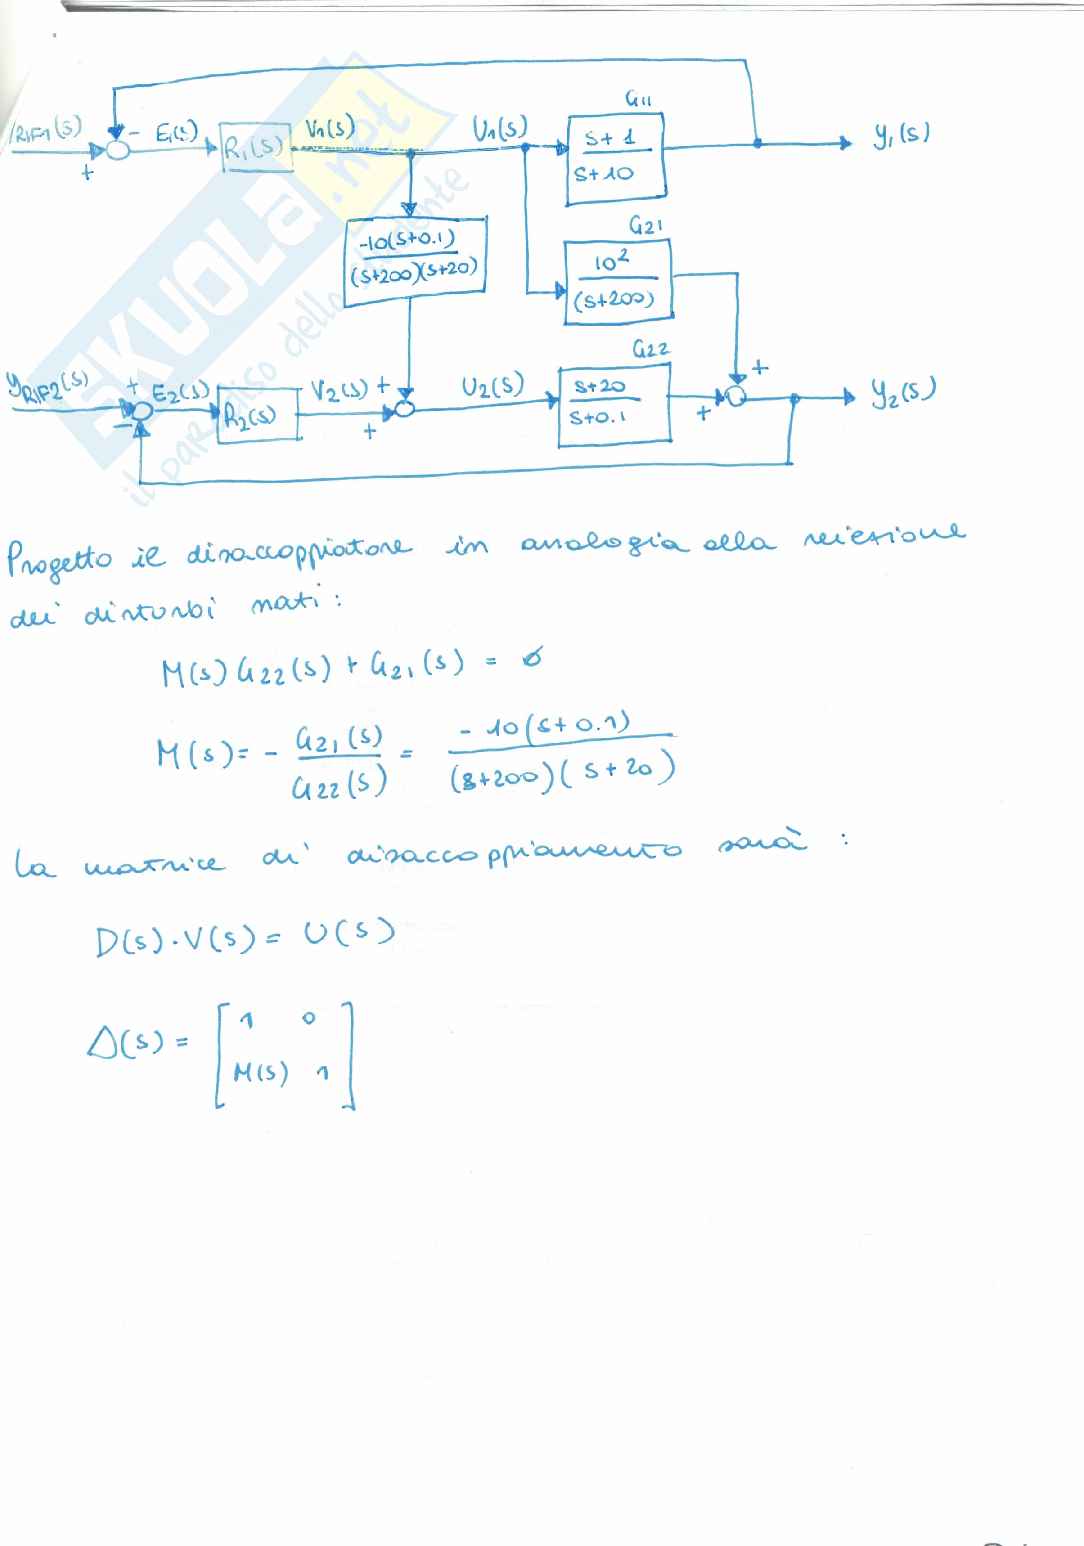 G11
YRIF1(s) - E1(s) R1(s) V1(s) U1(s) s+1 / s+10 y1(s)
+
G21
-10(s+0.1) / (s+200)(s+20)
10² / (s+200)
G22
YRIF2(s) + E2(s) R2(s) V2(s) + U2(s) s+20 / s+0.1 + y2(s)
- + +
SKUOLA.net
il paradiso dello studente
Progetto il disaccoppiatore in analogia alla reiezione
dei disturbi nati:
M(s) G22(s) + G21(s) = 0
M(s) = - G21(s) / G22(s) = -10(s+0.1) / (s+200)(s+20)
La matrice di disaccoppiamento sarà:
D(s)·V(s) = U(s)
Δ(s) = [ 1 0
M(s) 1 ]